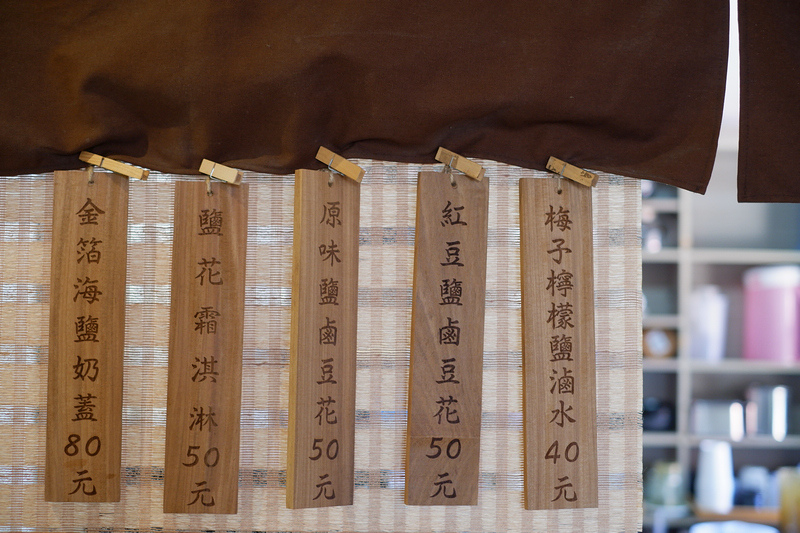 金箔海鹽奶蓋80元
鹽花霜淇淋50元
原味鹽鹵豆花50元
紅豆鹽鹵豆花50元
梅子檸檬鹽滷水40元